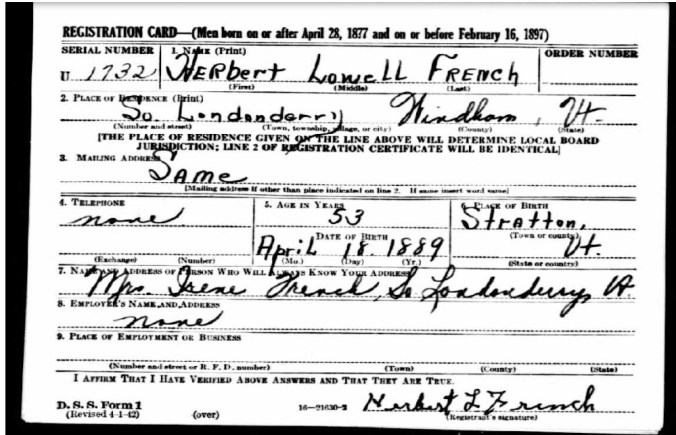 REGISTRATION CARD—(Men born on or after April 28, 1877 and on or before February 16, 1897)
SERIAL NUMBER 1. NAME (Print) ORDER NUMBER
U 1732 HERbert Lowell FRENCH
(First) (Middle) (Last)
2. PLACE OF RESIDENCE (Print)
So. Londonderry Windham, Vt.
(Number and street) (Town, township, village, or city) (County) (State)
[THE PLACE OF RESIDENCE GIVEN ON THE LINE ABOVE WILL DETERMINE LOCAL BOARD
JURISDICTION; LINE 2 OF REGISTRATION CERTIFICATE WILL BE IDENTICAL]
3. MAILING ADDRESS
SAME
[Mailing address if other than place indicated on line 2. If same insert word same]
4. TELEPHONE 5. AGE IN YEARS 6. PLACE OF BIRTH
none 53 Stratton,
DATE OF BIRTH (Town or county)
April 18. 1889 Vt.
(Exchange) (Number) (Mo.) (Day) (Yr.) (State or country)
7. NAME AND ADDRESS OF PERSON WHO WILL ALWAYS KNOW YOUR ADDRESS
Mrs. Irene French, So Londonderry, Vt
8. EMPLOYER'S NAME AND ADDRESS
none
9. PLACE OF EMPLOYMENT OR BUSINESS
(Number and street or R. F. D. number) (Town) (County) (State)
I AFFIRM THAT I HAVE VERIFIED ABOVE ANSWERS AND THAT THEY ARE TRUE.
D. S. S. Form 1 Herbert L French
(Revised 4-1-42) (over) 16—21630-2 (Registrant's signature)